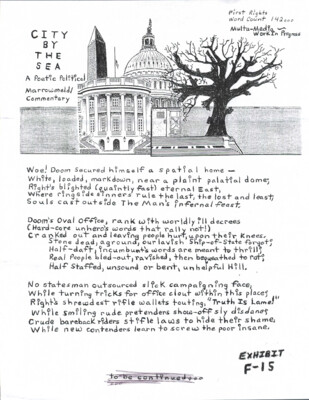 First Rights
Word Count 142
Multi-Media
Work In Progress
CITY
BY
THE
SEA
A Poetic Political
Commentary
Woe! Doom secured himself a spatial home —
White, loaded, markdown, near a plaint palatial dome;
Right's blighted (quaintly fast) eternal East,
Where ringside sinners rule the last, the lost and least;
Souls cast outside The Man's infernal feast.
Doom's Oval Office, rank with worldly ill decrees
(Hard-core unhero's words that rally not!)
Cranked out and leaving people hurt, upon their knees.
Stone dead, aground, our lavish Ship-of-State forgot;
Half-daft, incumbent's words are meant to thrill;
Real People bled-out, ravished, then bequeathed to rot;
Half Staffed, unsound or bent, unhelpful Hill.
No statesman outsourced slick campaigning face,
While turning tricks for office clout within this place;
Right's shrewdest rifle wallets touting, "Truth Is Lame!"
While smiling rude pretenders show-off sly disdane;
Crude bareback riders stifle laws to hide their shame,
While new contenders learn to screw the poor insane.
EXHIBIT
F-15
to be continued...